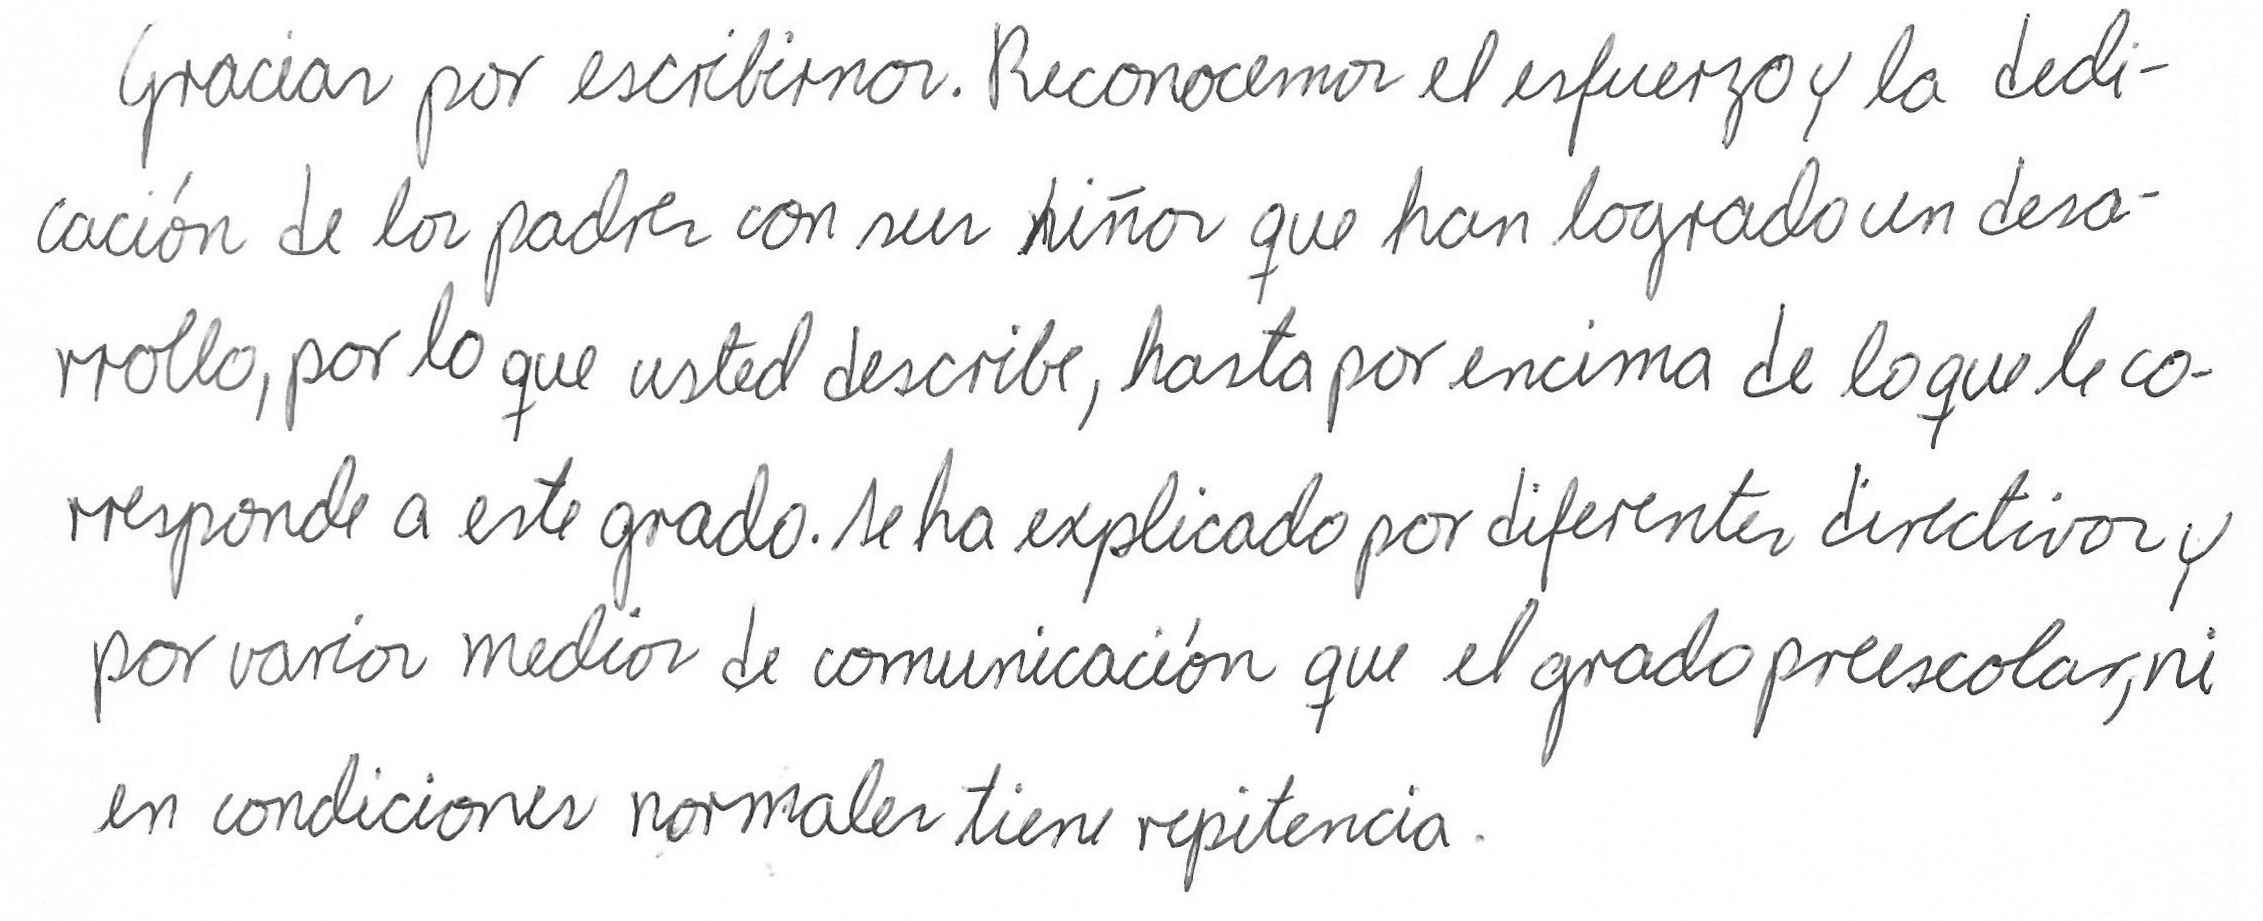 Gracias por escribirnos. Reconocemos el esfuerzo y la dedi-
cación de los padres con sus niños que han logrado un desa-
rrollo, por lo que usted describe, hasta por encima de lo que le co-
rresponde a este grado. Se ha explicado por diferentes directivos y
por varios medios de comunicación que el grado preescolar, ni
en condiciones normales tiene repitencia.